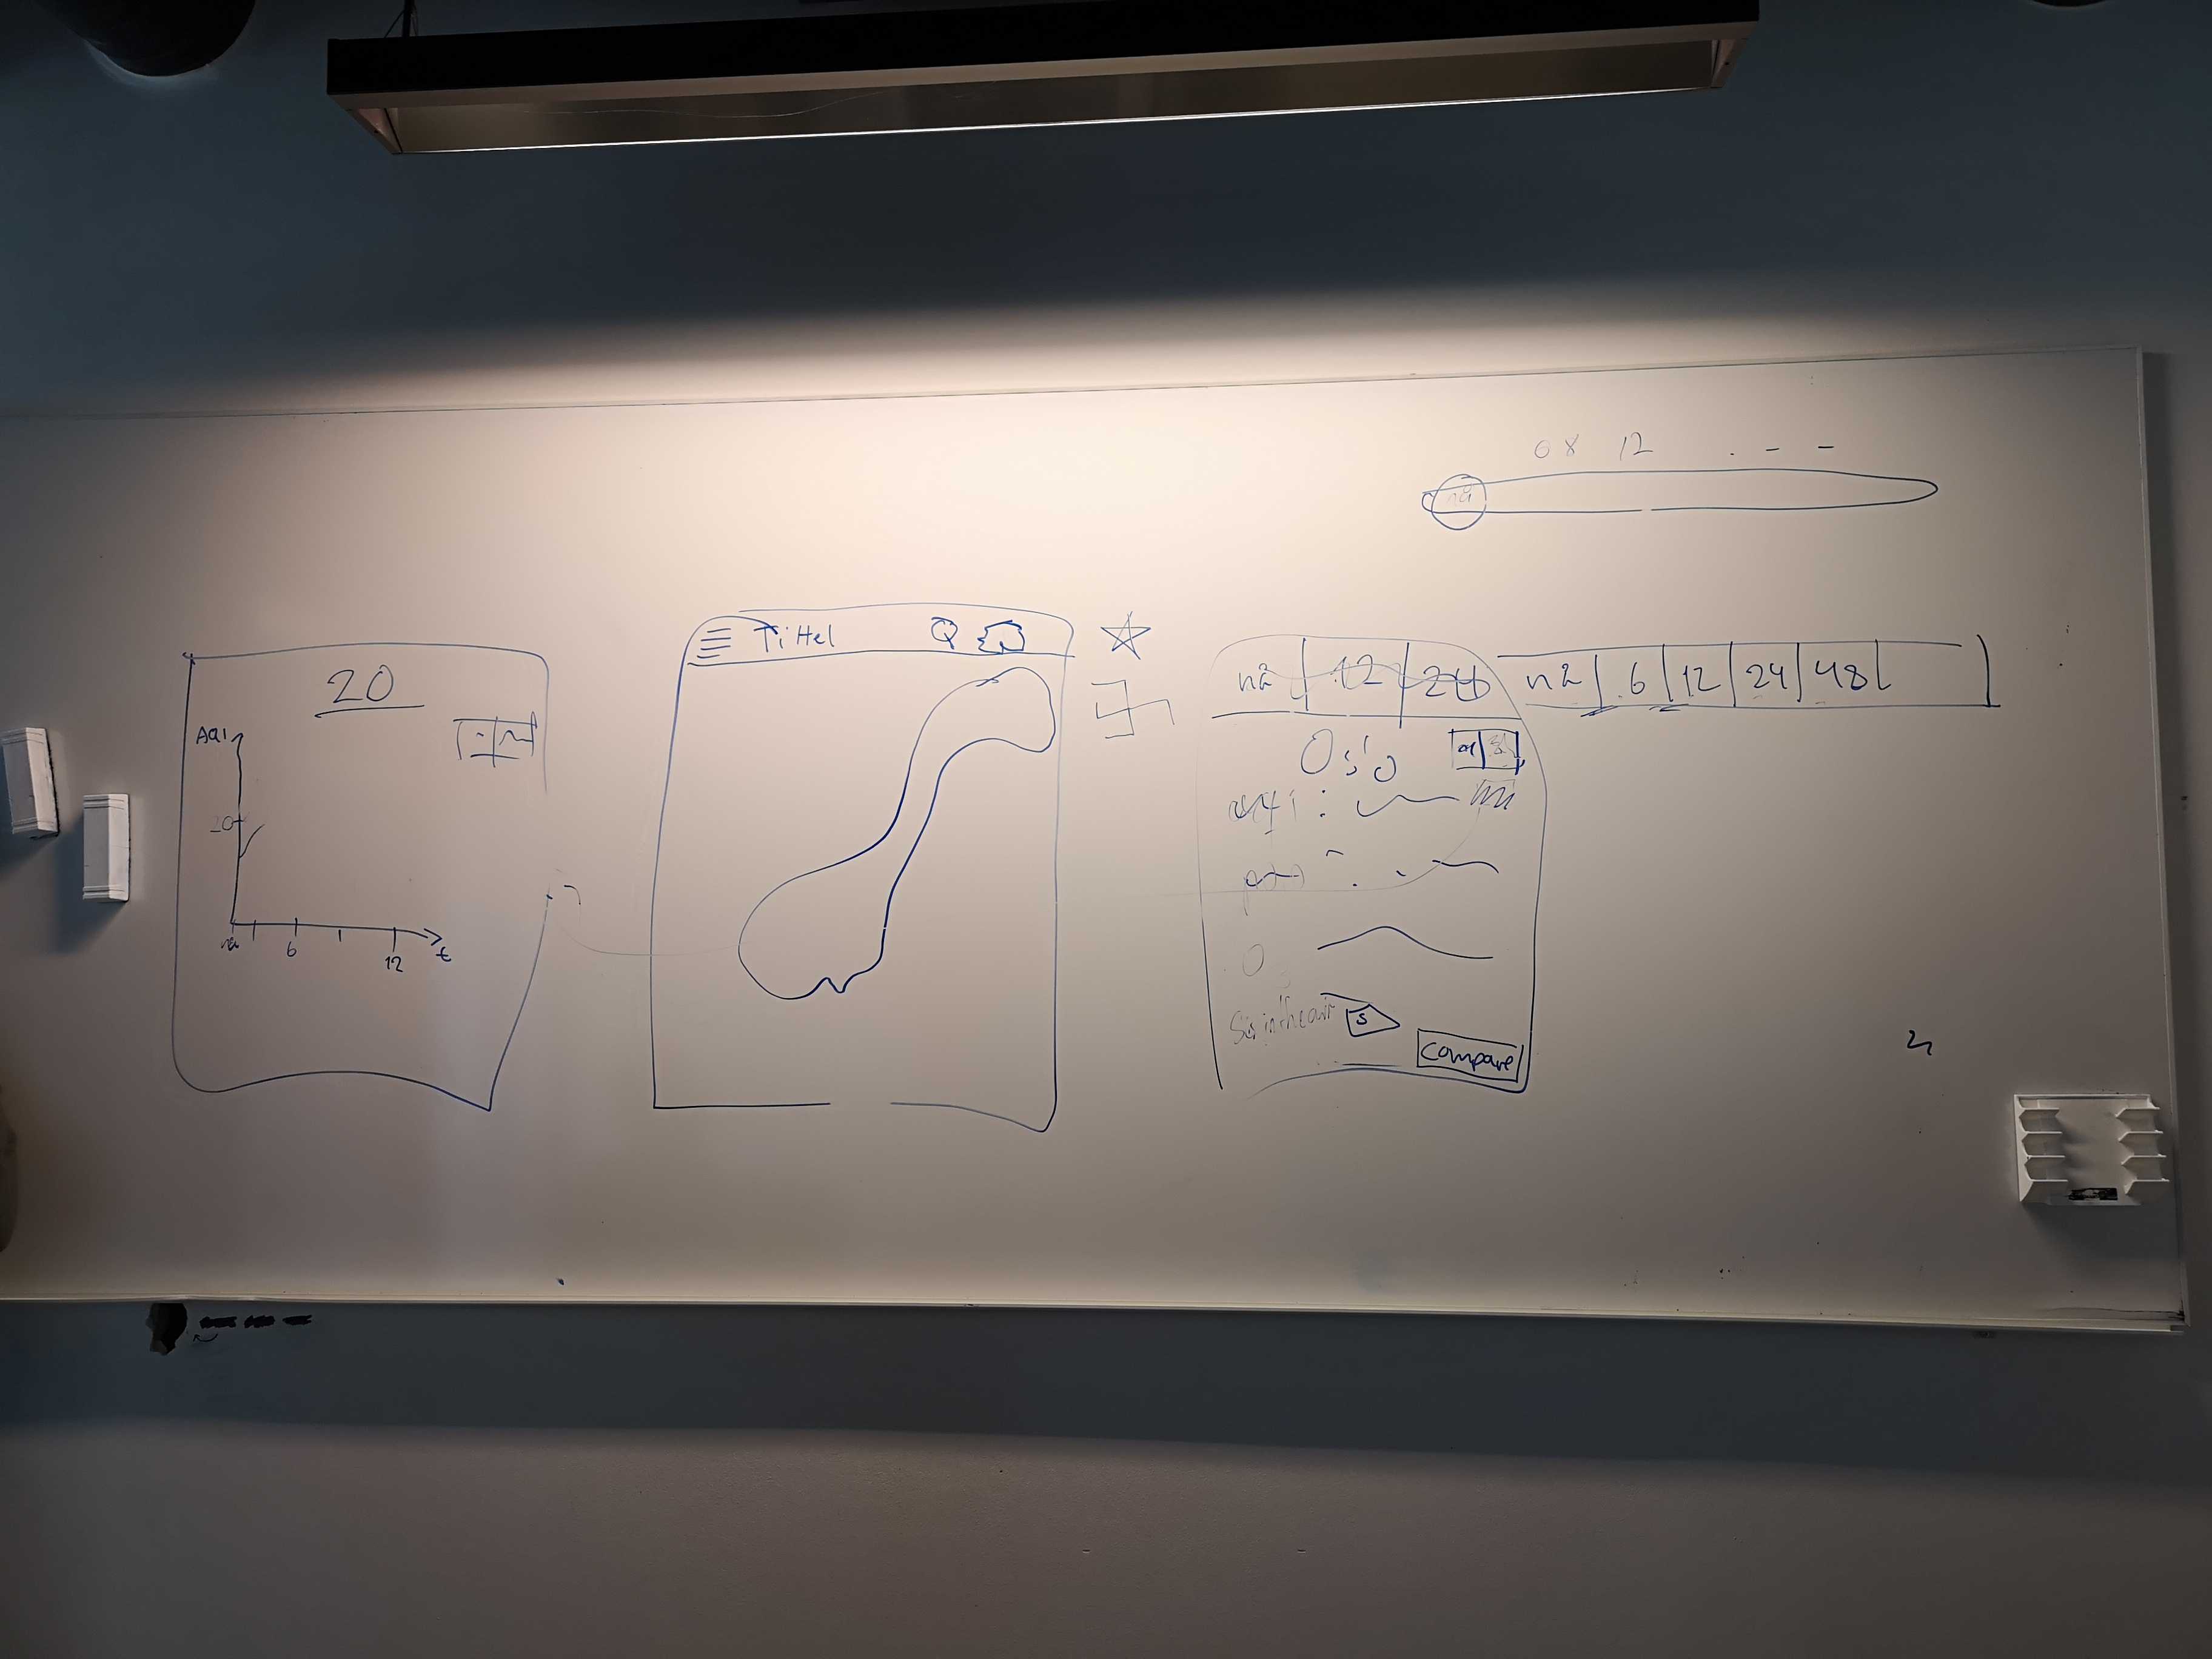 08 12 . - -
nå
20
AQI
20
nå 6 12 t
Tittel
nå 12 24
nå 6 12 24 48
Oslo
aqi :
O
S
Compare